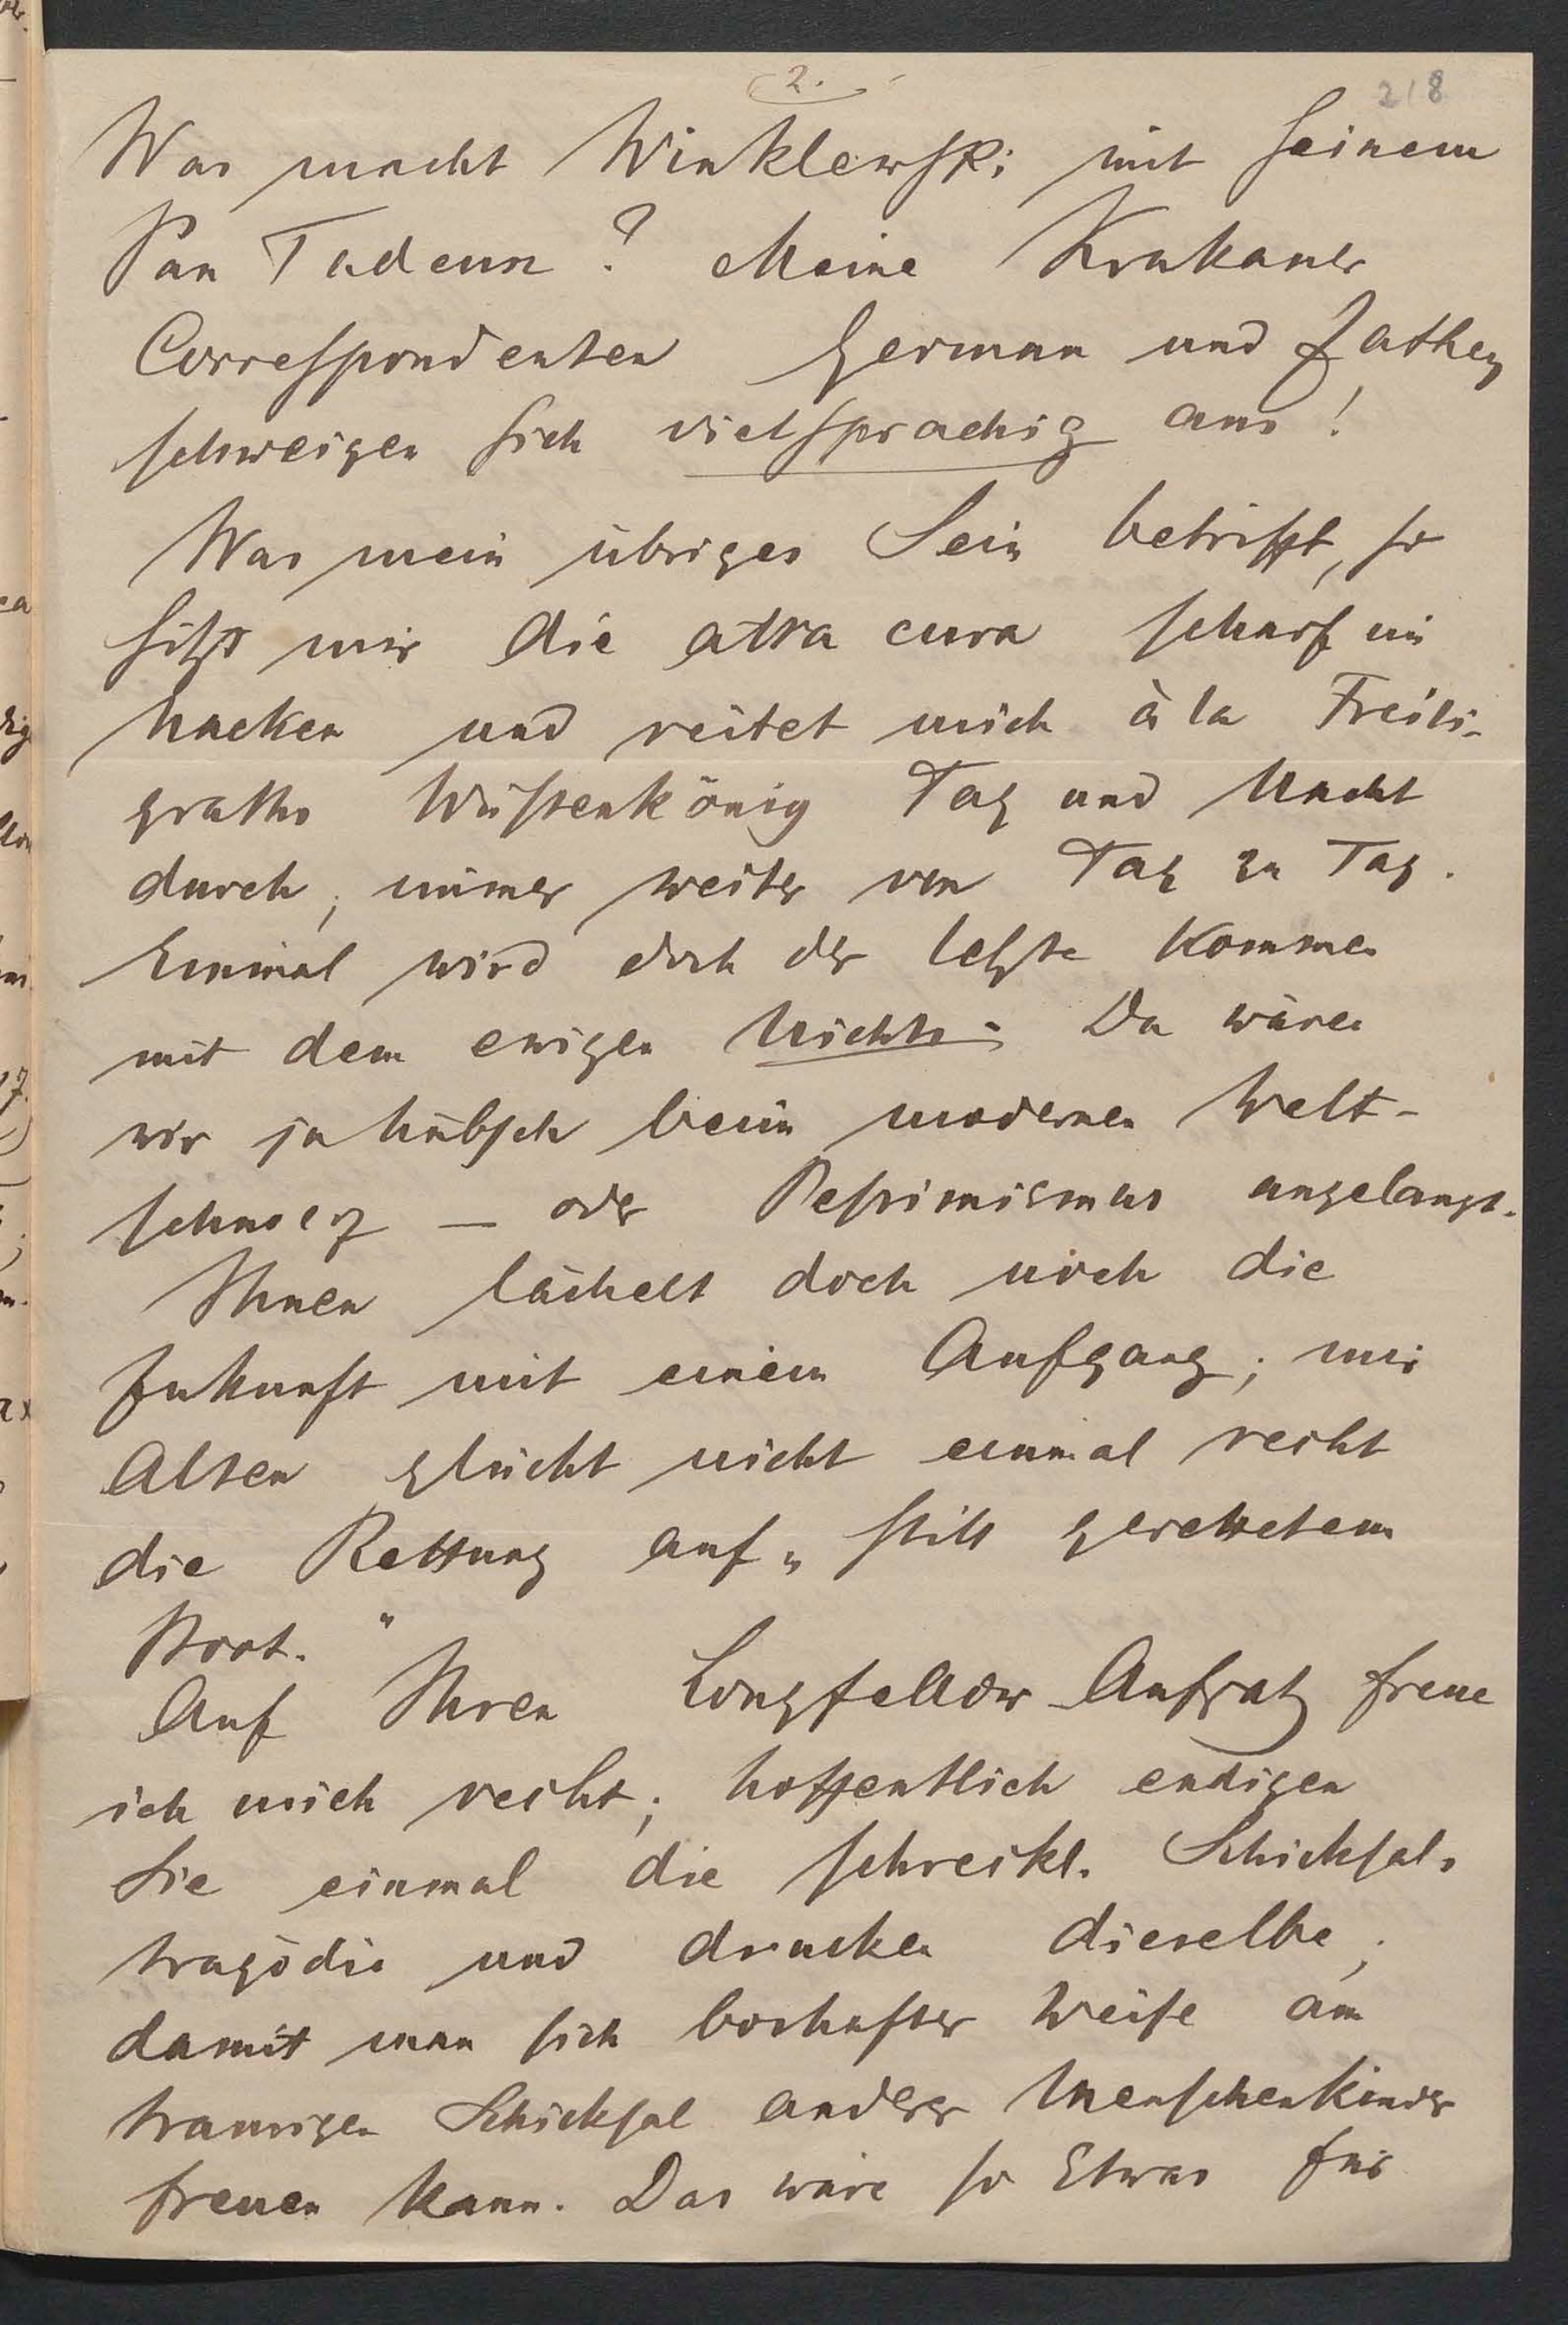 2.
218
Was macht Winklewski mit seinem
Pan Tadeusz? Meine Krakauer
Correspondenten German und Zathey
schweigen sich vielsprachig aus!
Was mein übriges Sein betrifft, so
sitzt mir die atra cura scharf im
Nacken und reitet mich à la Freili-
graths Wüstenkönig Tag und Nacht
durch, immer weiter von Tag zu Tag.
Einmal wird doch der letzte kommen
mit dem ewigen Nichts. Da wären
wir ja hübsch beim modernen Welt-
schmerz — oder Pessimismus angelangt.
Ihnen lächelt doch noch die
Zukunft mit einem Aufgang; mir
Alten glückt nicht einmal recht
die Rettung auf „still gerettetem
Boot."
Auf Ihren Longfellow Aufsatz freue
ich mich recht; hoffentlich endigen
Sie einmal die schreckl. Schicksals
tragödie und drucken dieselbe,
damit man sich boshafter Weise am
traurigen Schicksal anderer Menschenkinder
freuen kann. Das wäre so Etwas für